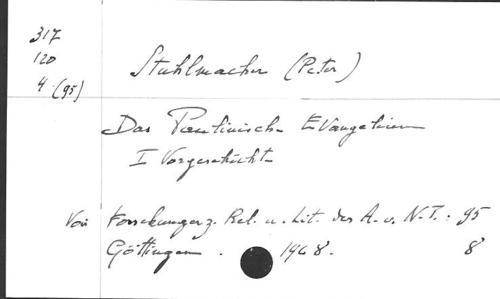 317
120
4 (95)
Stuhlmacher (Peter)
Das Paulinische Evangelium
I Vorgeschichte
Voir Forschungen z. Rel. u. Lit. des A. u. N.T. : 95
Göttingen . 1968. 8